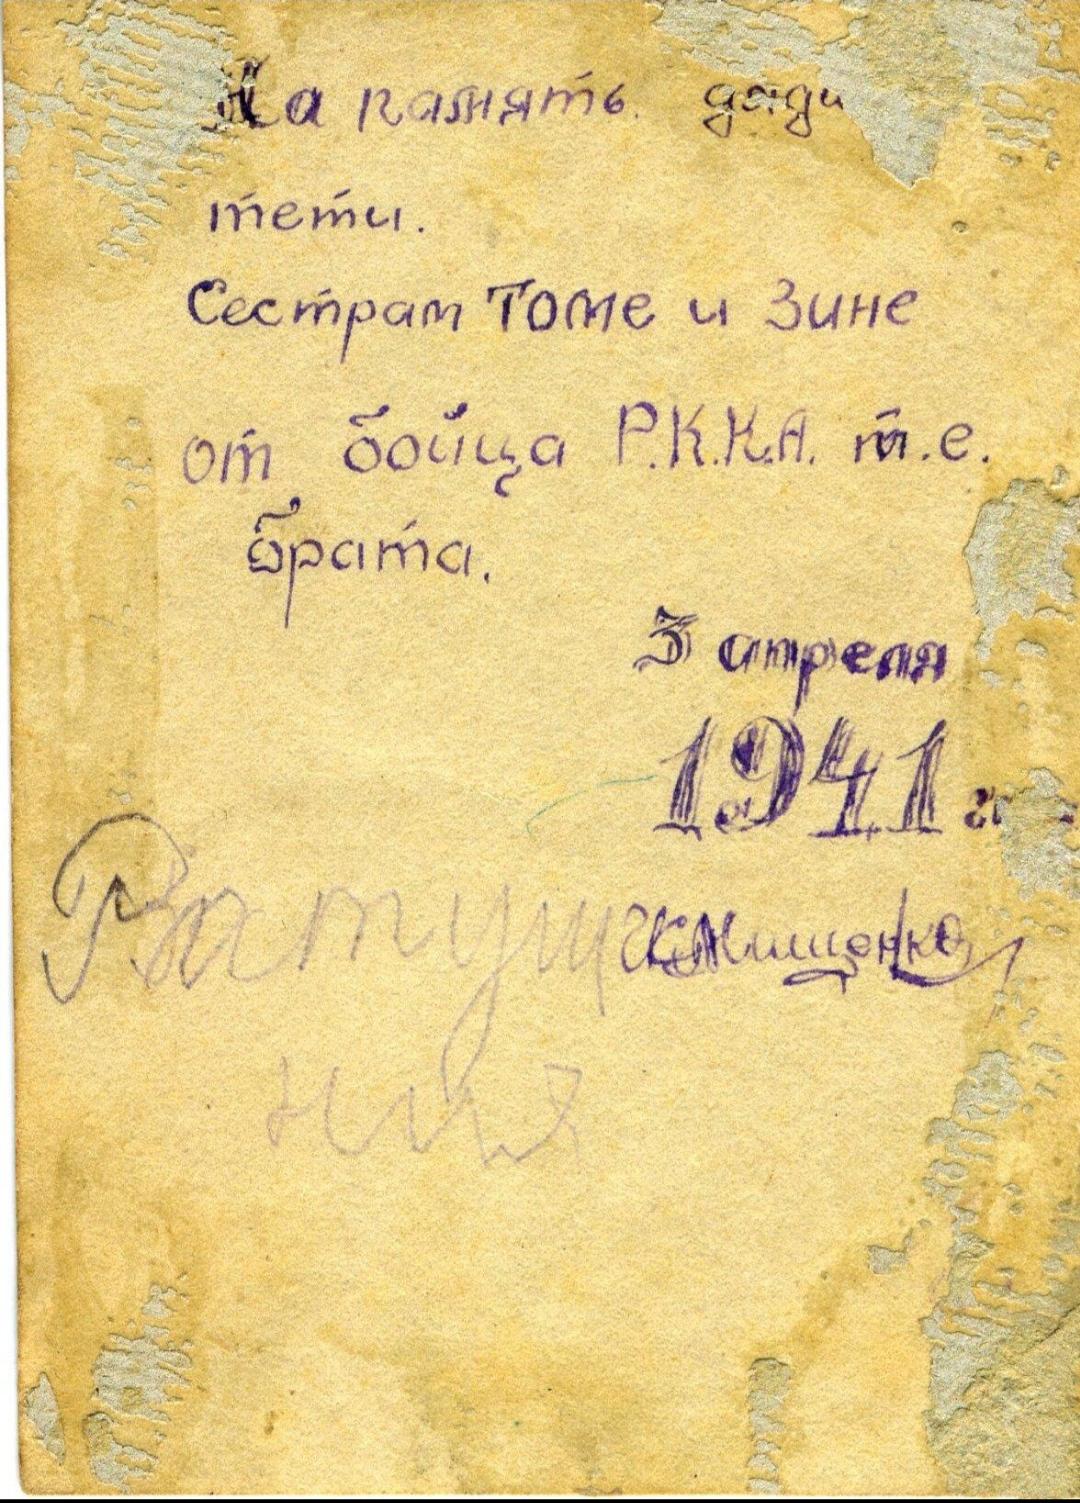 На память. дяди
тети.
Сестрам Томе и Зине
от бойца Р.К.К.А. т.е.
брата.
3 апреля
1941 г.